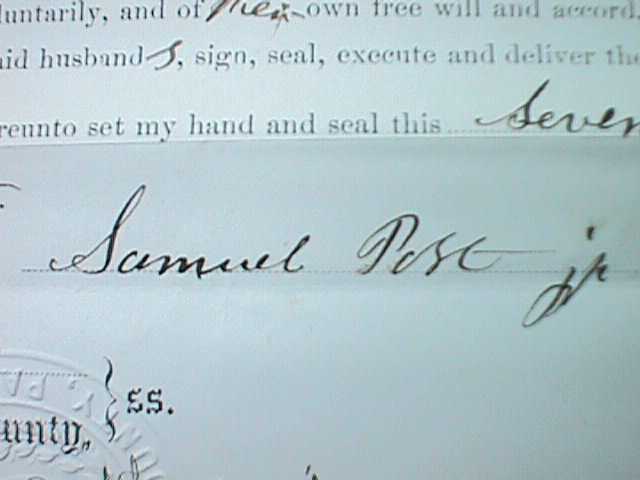 luntarily, and of their own free will and accord,
aid husbands, sign, seal, execute and deliver the
reunto set my hand and seal this Seven
Samuel Post jr
ss.
unty,